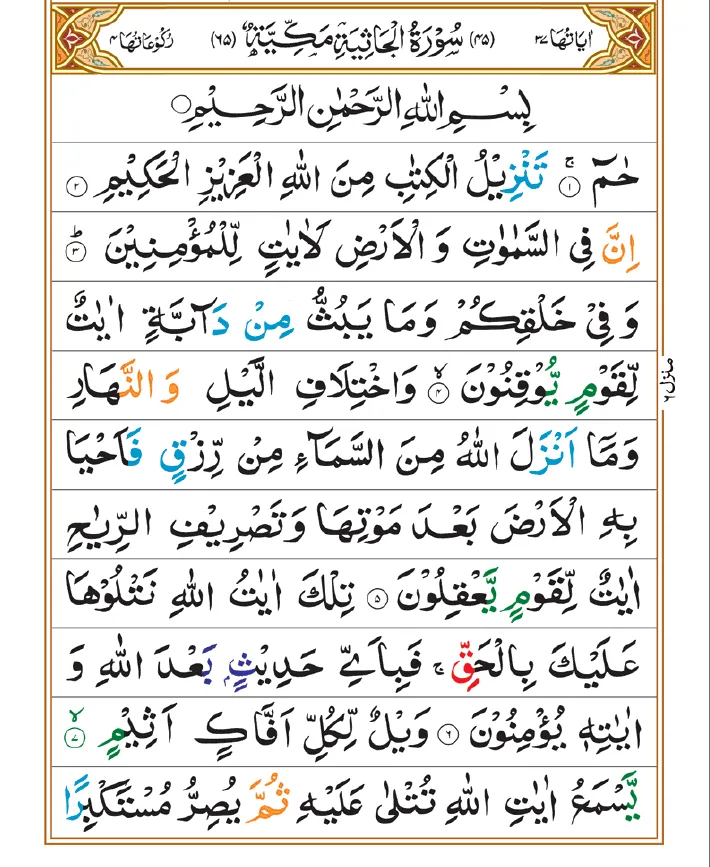 اٰیَاتُهَا ۳۷ (۴۵) سُوْرَةُ الْجَاثِيَةِ مَكِّيَّةٌ (۶۵) رُكُوْعَاتُهَا ۴
بِسْمِ اللّٰهِ الرَّحْمٰنِ الرَّحِيْمِ
حٰمٓ ۚ ۱ تَنْزِيْلُ الْكِتٰبِ مِنَ اللّٰهِ الْعَزِيْزِ الْحَكِيْمِ ۲
اِنَّ فِي السَّمٰوٰتِ وَ الْاَرْضِ لَاٰيٰتٍ لِّلْمُؤْمِنِيْنَ ؕ ۳
وَ فِيْ خَلْقِكُمْ وَ مَا يَبُثُّ مِنْ دَآبَّةٍ اٰيٰتٌ
لِّقَوْمٍ يُّوْقِنُوْنَ ۙ ۴ وَ اخْتِلَافِ الَّيْلِ وَ النَّهَارِ
وَ مَاۤ اَنْزَلَ اللّٰهُ مِنَ السَّمَآءِ مِنْ رِّزْقٍ فَاَحْيَا
بِهِ الْاَرْضَ بَعْدَ مَوْتِهَا وَ تَصْرِيْفِ الرِّيٰحِ
اٰيٰتٌ لِّقَوْمٍ يَّعْقِلُوْنَ ۵ تِلْكَ اٰيٰتُ اللّٰهِ نَتْلُوْهَا
عَلَيْكَ بِالْحَقِّ ۚ فَبِاَيِّ حَدِيْثٍۭ بَعْدَ اللّٰهِ وَ
اٰيٰتِهٖ يُؤْمِنُوْنَ ۶ وَيْلٌ لِّكُلِّ اَفَّاكٍ اَثِيْمٍ ۙ ۷
يَّسْمَعُ اٰيٰتِ اللّٰهِ تُتْلٰى عَلَيْهِ ثُمَّ يُصِرُّ مُسْتَكْبِرًا
منزل ۶